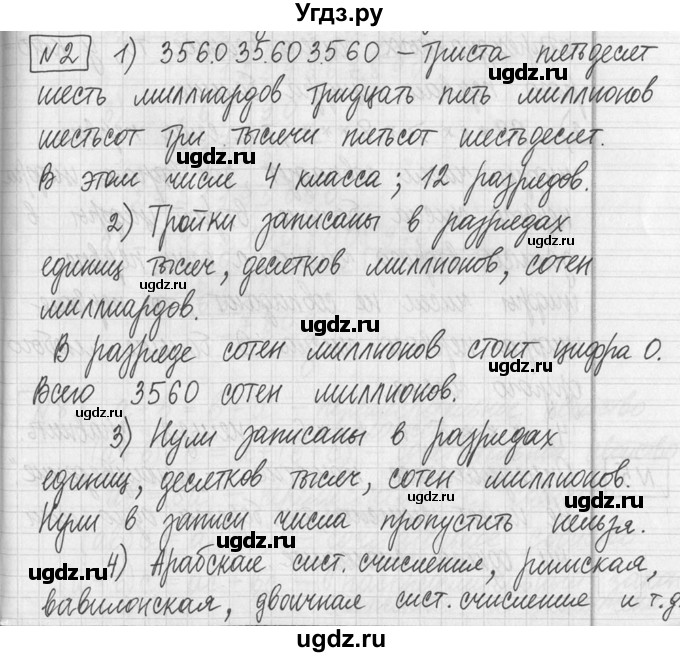 Угдз.ру
№2 1) 356.035.603.560 – Триста пятьдесят
шесть миллиардов тридцать пять миллионов
шестьсот три тысячи пятьсот шестьдесят.
В этом числе 4 класса; 12 разрядов.
2) Тройки записаны в разрядах
единиц тысяч, десятков миллионов, сотен
миллиардов.
В разряде сотен миллионов стоит цифра 0.
Всего 3560 сотен миллионов.
3) Нули записаны в разрядах
единиц, десятков тысяч, сотен миллионов.
Нули в записи числа пропустить нельзя.
4) Арабская сист. счисления, римская,
вавилонская, двоичная сист. счисления и т.д.
ugdz.ru